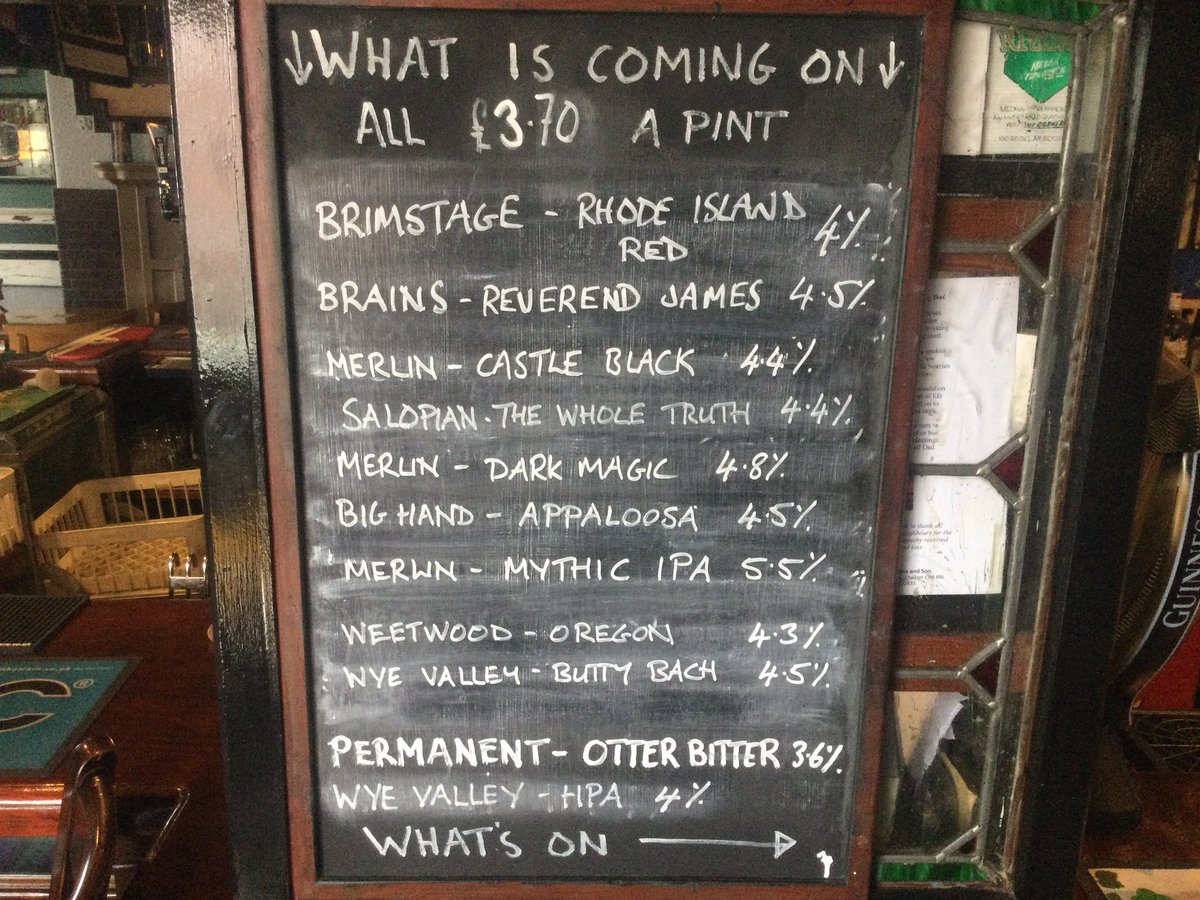 ↓WHAT IS COMING ON↓
ALL £3.70 A PINT
BRIMSTAGE - RHODE ISLAND 4%
RED
BRAINS - REVEREND JAMES 4.5%
MERLIN - CASTLE BLACK 4.4%
SALOPIAN. THE WHOLE TRUTH 4.4%
MERLIN - DARK MAGIC 4.8%
BIG HAND - APPALOOSA 4.5%
MERLIN - MYTHIC IPA 5.5%
WEETWOOD - OREGON 4.3%
WYE VALLEY - BUTTY BACH 4.5%
PERMANENT - OTTER BITTER 3.6%
WYE VALLEY - HPA 4%
WHAT'S ON →
GUINNE